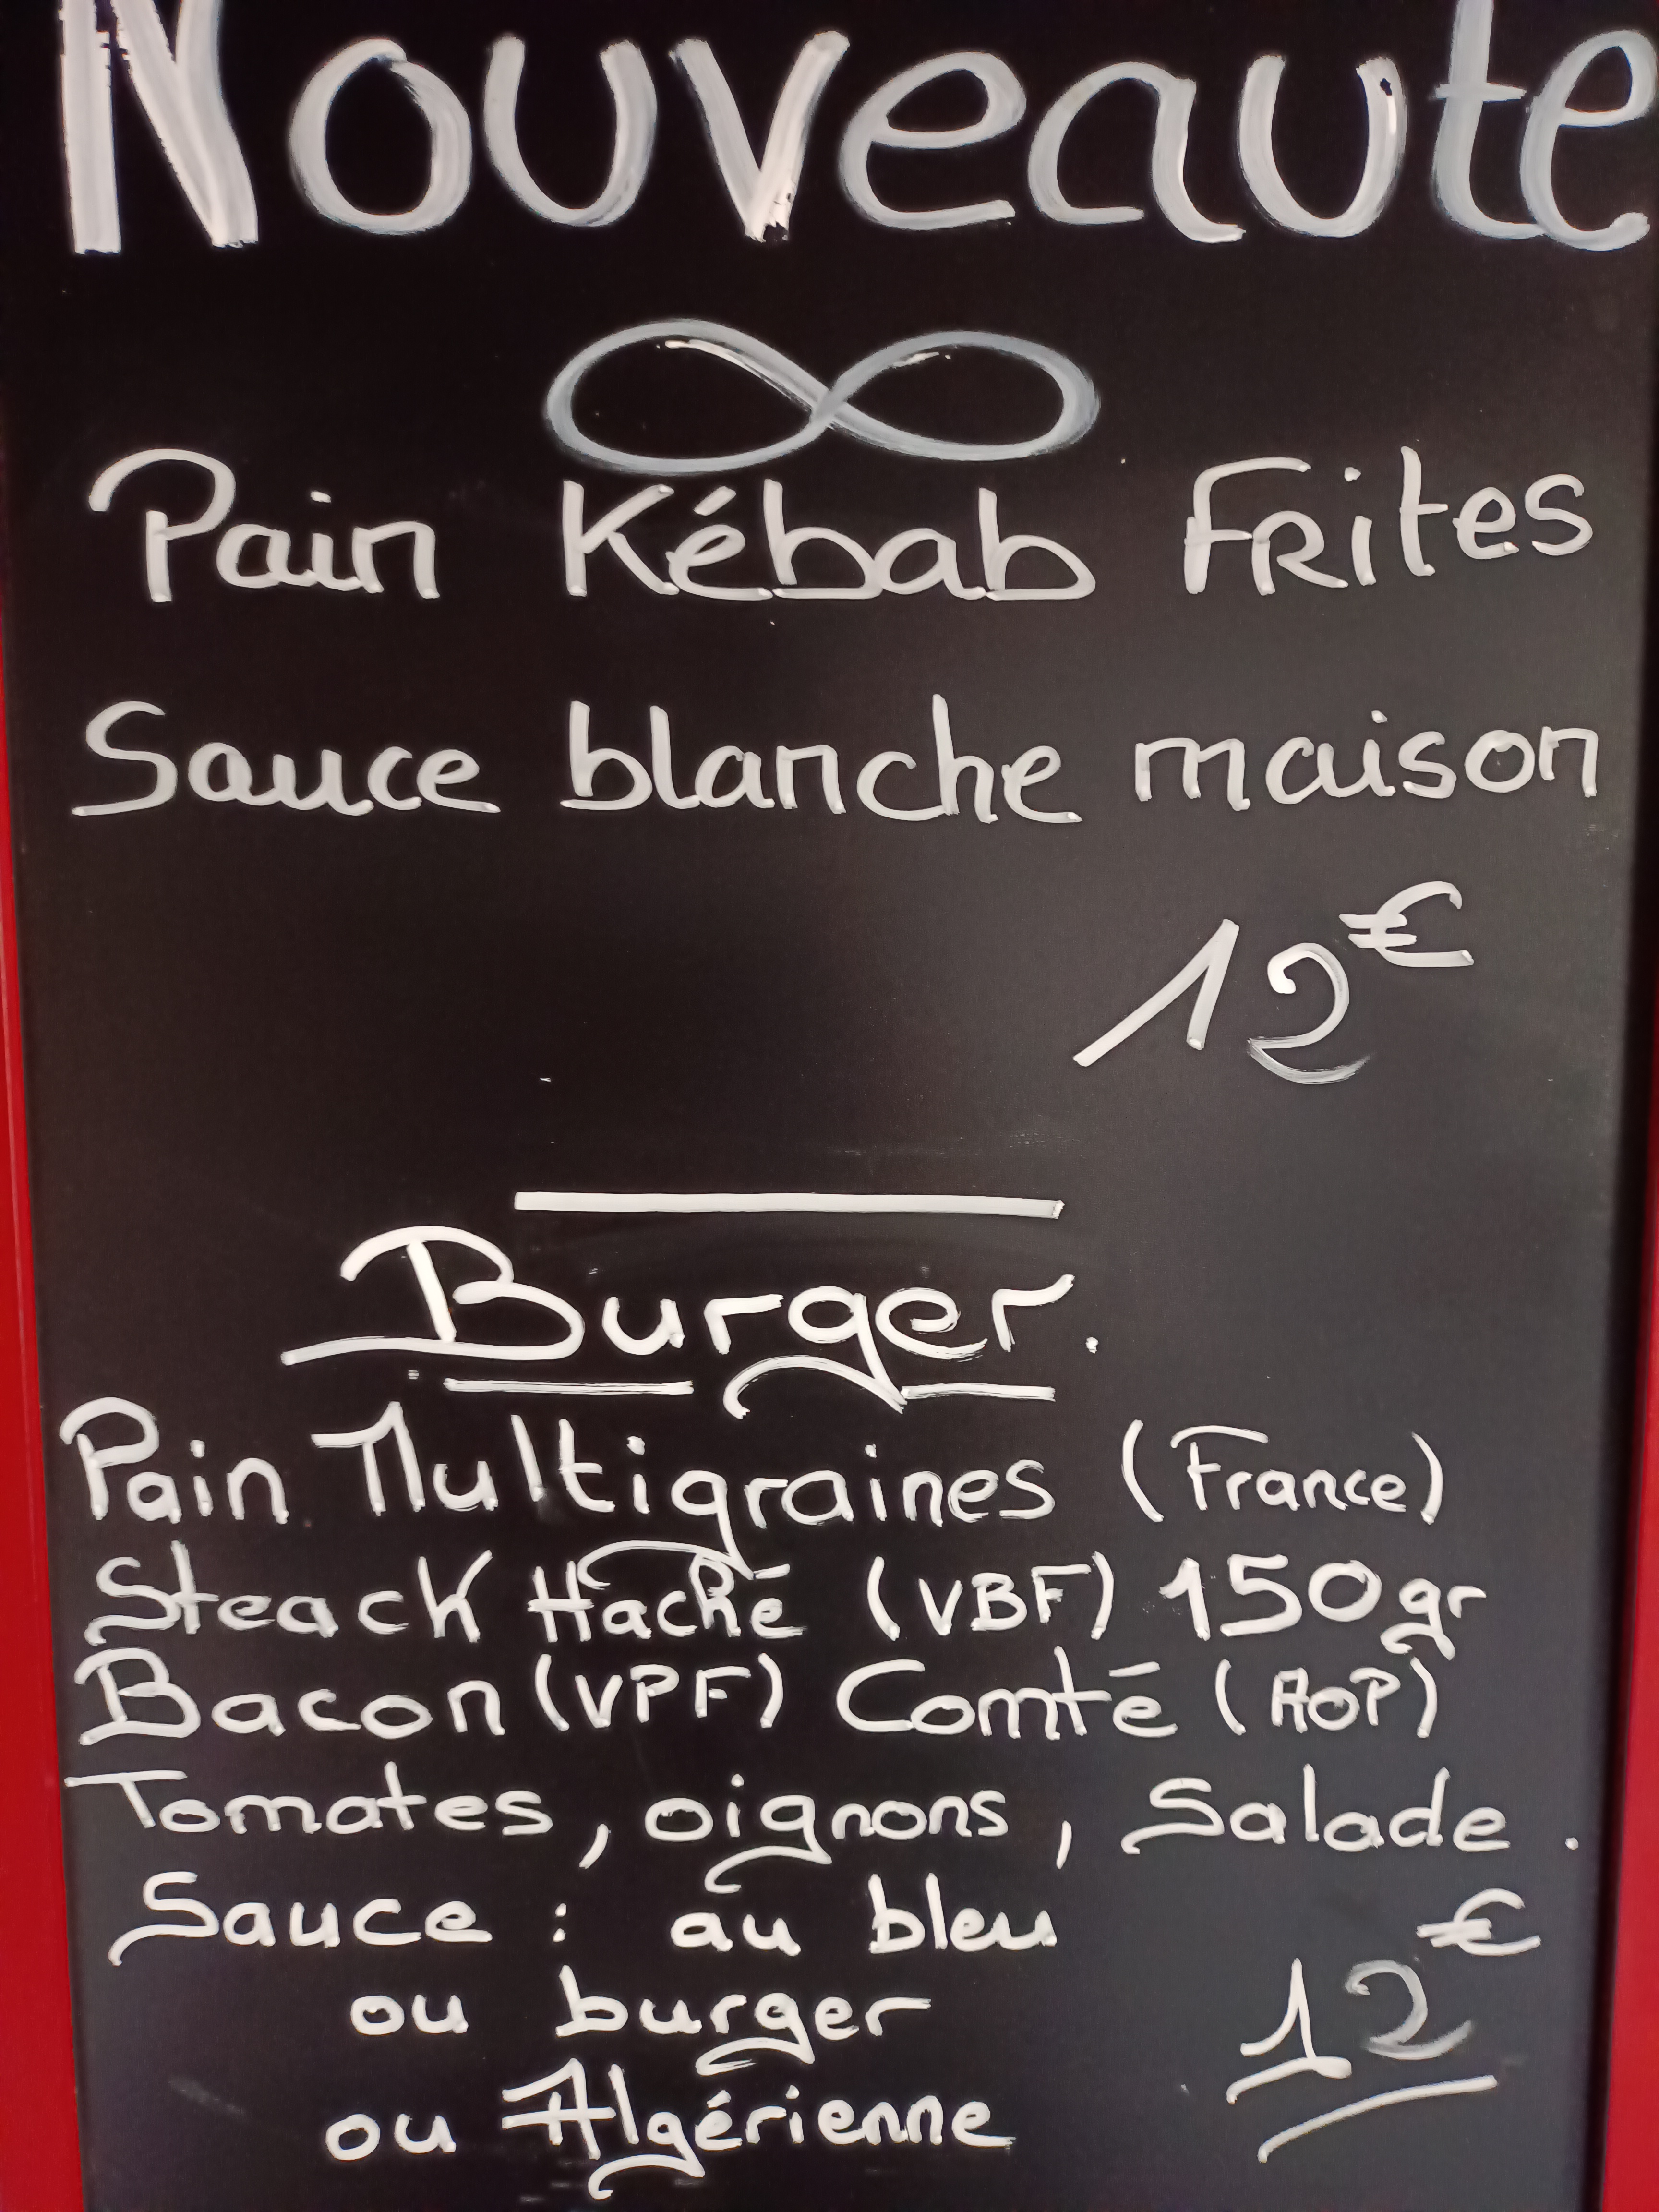 Nouveauté
Pain Kébab Frites
Sauce blanche maison
12€
Burger.
Pain Multigraines (France)
Steack Haché (VBF) 150gr
Bacon (VPF) Comté (AOP)
Tomates, oignons, Salade.
Sauce : au bleu
ou burger
12€
ou Algérienne